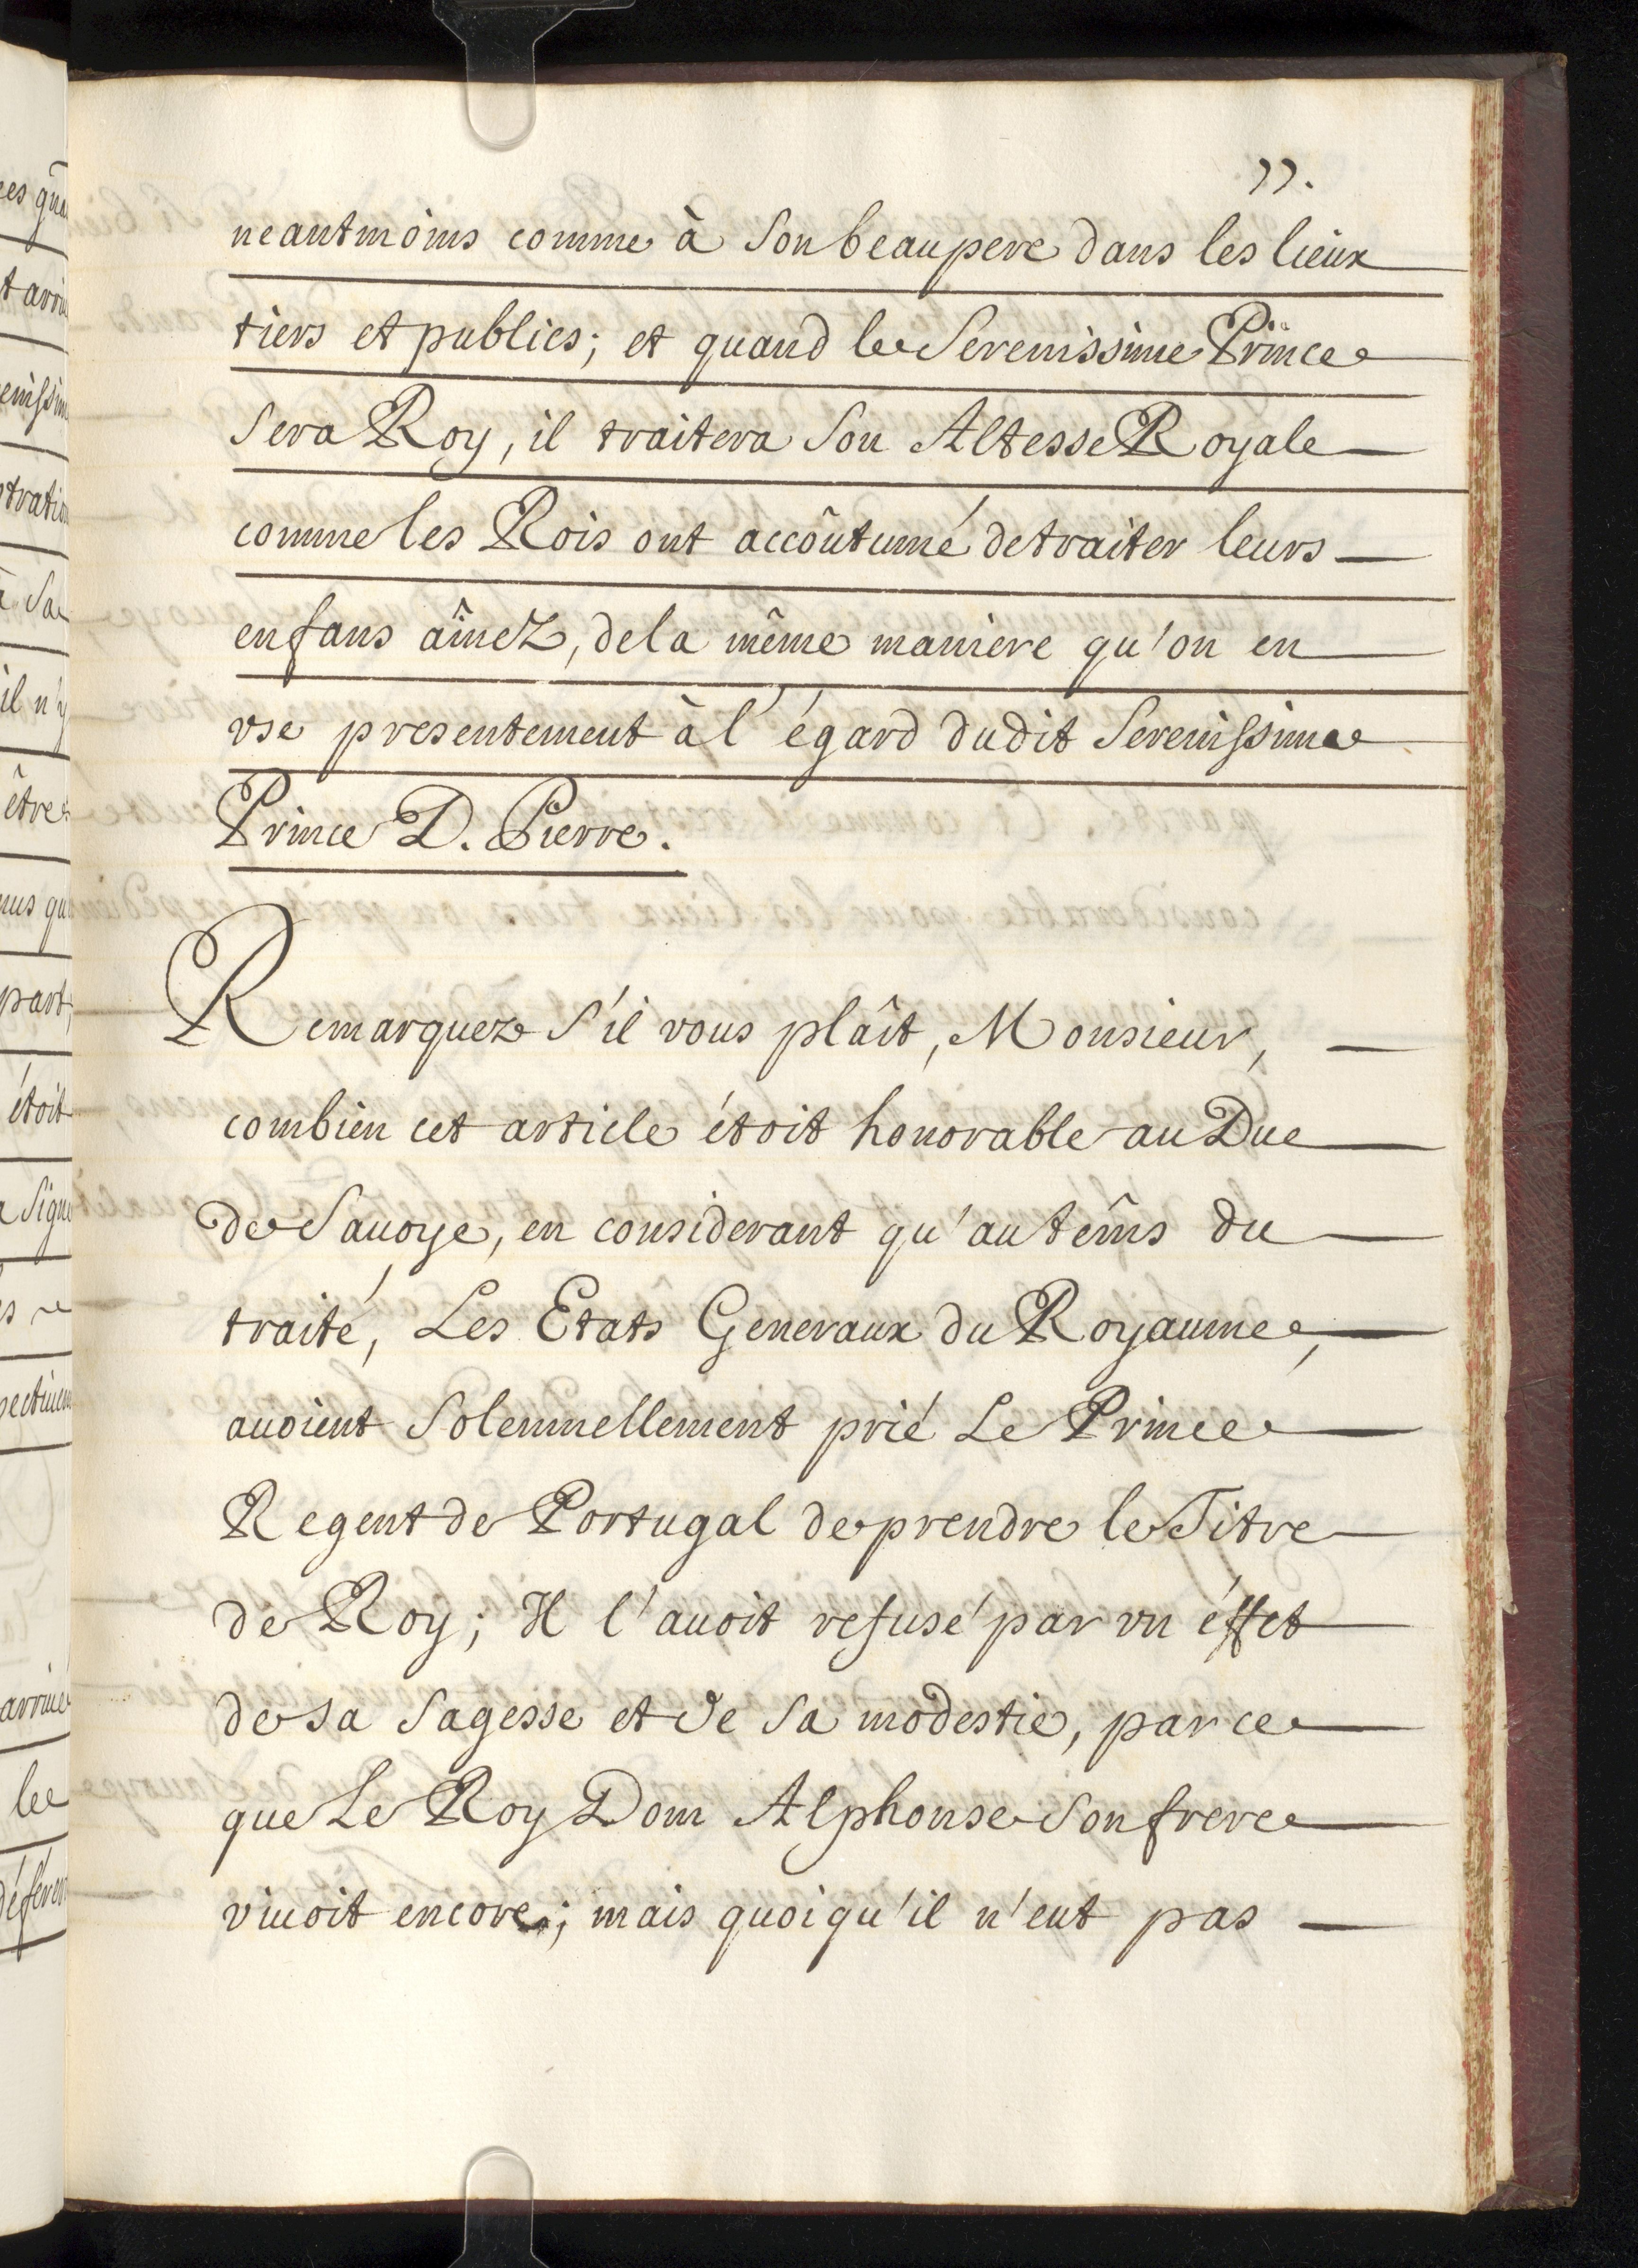 77.
neantmoins comme à Son beaupere dans les lieux
tiers et publics; et quand le Serenissime Prince
Sera Roy, il traitera Son Altesse Royale
comme les Rois ont accoûtumé de traiter leurs
enfans aînez, de la même maniere qu'on en
vse presentement à l'égard dudit Serenissime
Prince D. Pierre.
Remarquez s'il vous plâit, Monsieur,
combien cet article étoit honorable au Duc
de Sauoye, en considerant qu'au têms du
traité, Les Etats Generaux du Royaume,
auoient Solemnellement prié Le Prince
Regent de Portugal de prendre le Titre
de Roy; Il l'auoit refusé par vn éffet
de sa Sagesse et de Sa modestie, parce
que Le Roy Dom Alphonse Son frere
viuoit encore; mais quoiqu'il n'eut pas